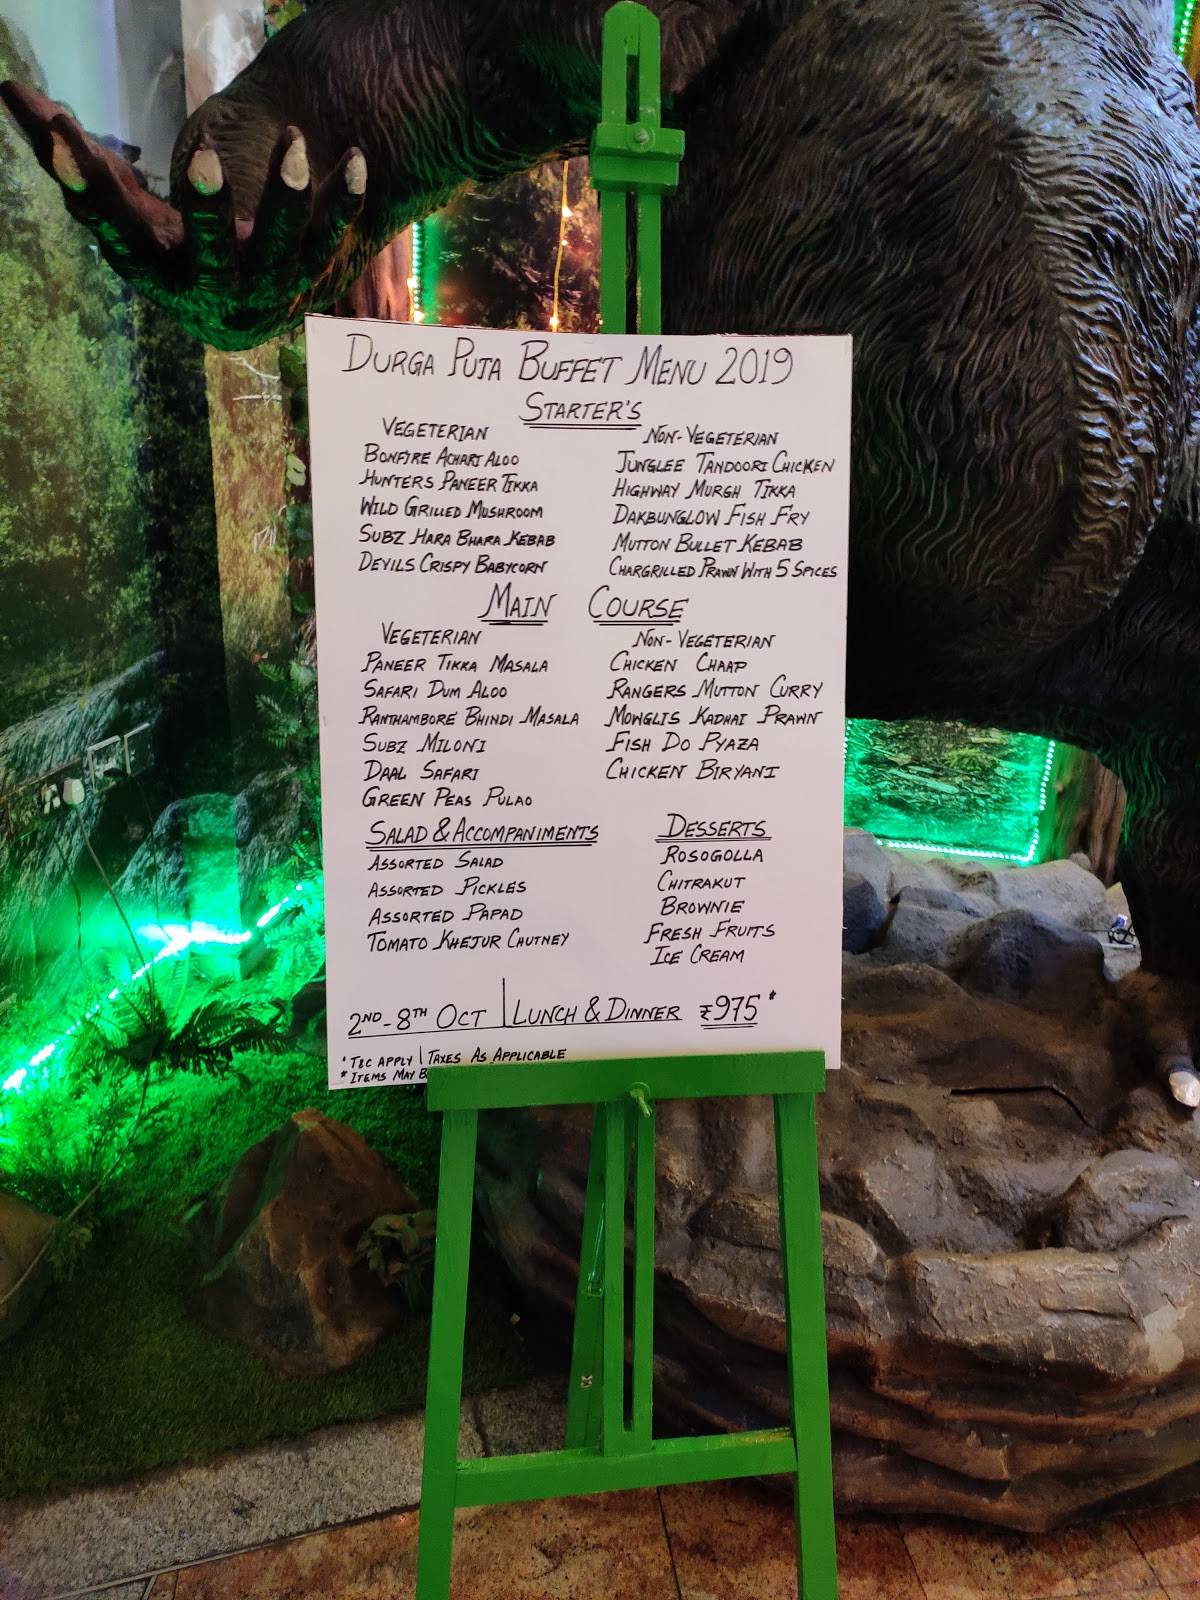 DURGA PUJA BUFFET MENU 2019
STARTER'S
VEGETERIAN
BONFIRE ACHARI ALOO
HUNTERS PANEER TIKKA
WILD GRILLED MUSHROOM
SUBZ HARA BHARA KEBAB
DEVILS CRISPY BABYCORN
NON-VEGETERIAN
JUNGLEE TANDOORI CHICKEN
HIGHWAY MURGH TIKKA
DAKBUNGLOW FISH FRY
MUTTON BULLET KEBAB
CHARGRILLED PRAWN WITH 5 SPICES
MAIN COURSE
VEGETERIAN
PANEER TIKKA MASALA
SAFARI DUM ALOO
RANTHAMBORE BHINDI MASALA
SUBZ MILONI
DAAL SAFARI
GREEN PEAS PULAO
NON-VEGETERIAN
CHICKEN CHAAP
RANGERS MUTTON CURRY
MOWGLIS KADHAI PRAWN
FISH DO PYAZA
CHICKEN BIRYANI
SALAD & ACCOMPANIMENTS
ASSORTED SALAD
ASSORTED PICKLES
ASSORTED PAPAD
TOMATO KHEJUR CHUTNEY
DESSERTS
ROSOGOLLA
CHITRAKUT
BROWNIE
FRESH FRUITS
ICE CREAM
2ND-8TH OCT | LUNCH & DINNER ₹975*
*T&C APPLY | TAXES AS APPLICABLE
*ITEMS MAY